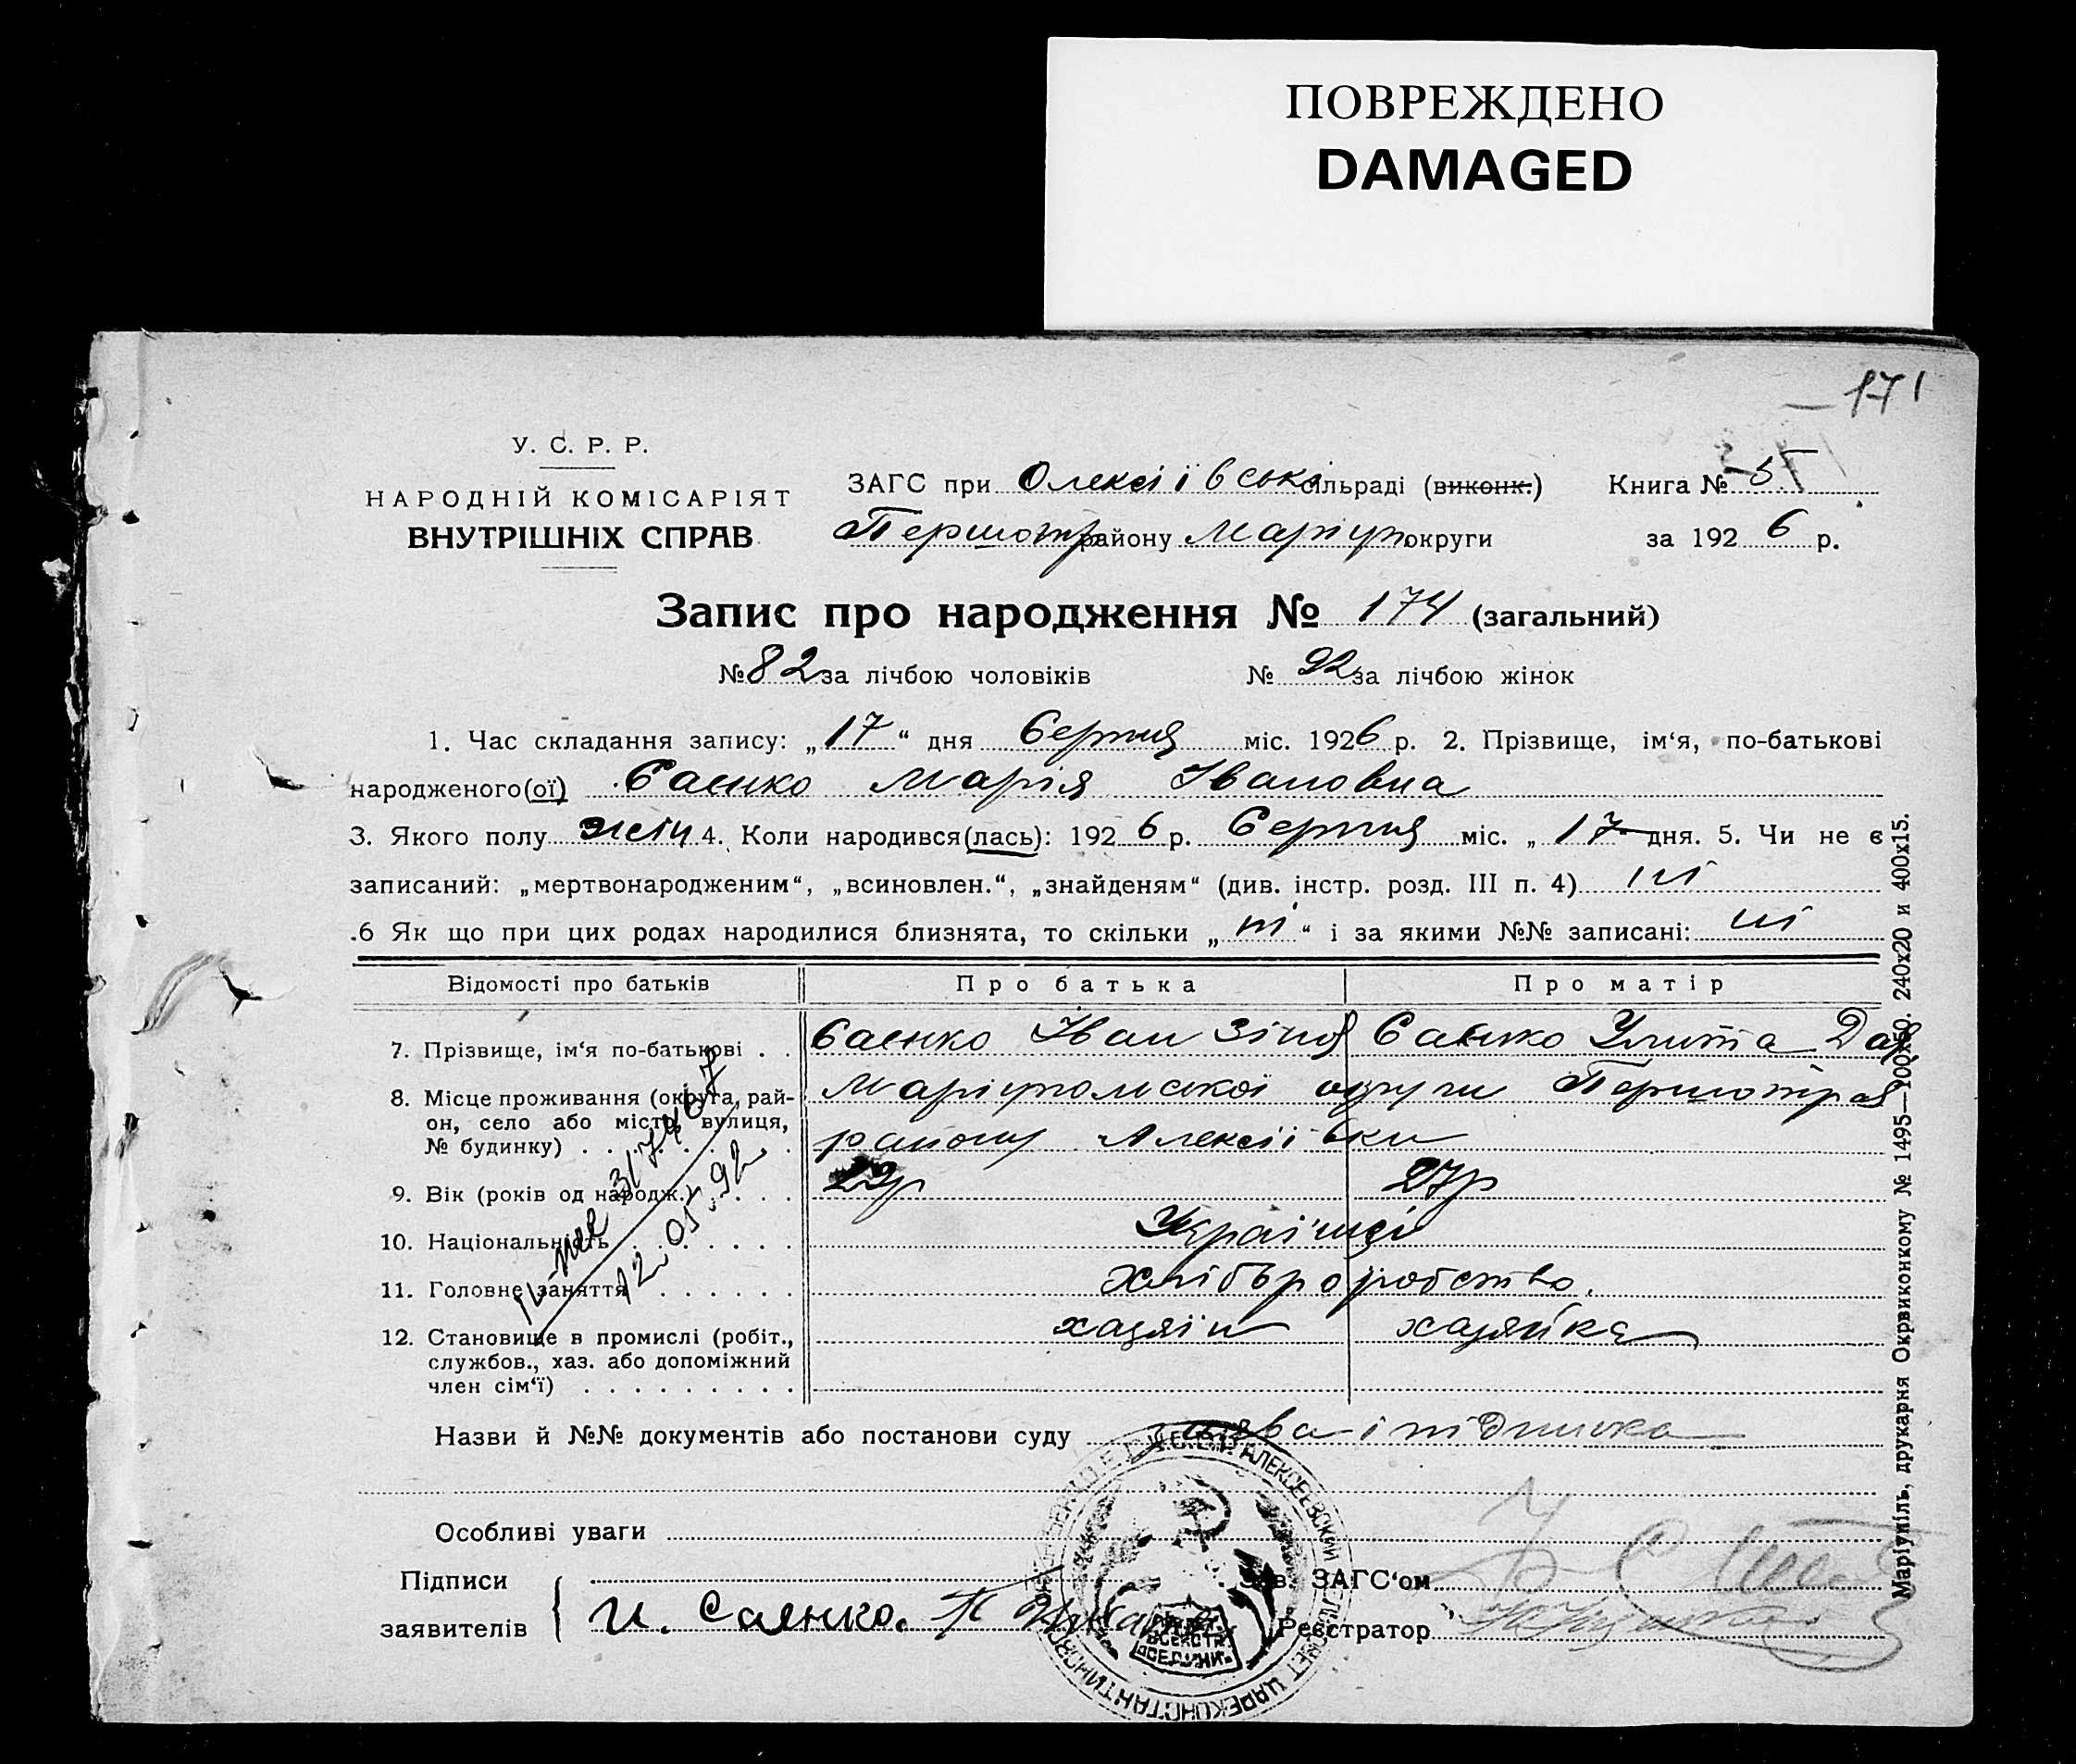 ПОВРЕЖДЕНО
DAMAGED
171
У. С. Р. Р.
НАРОДНІЙ КОМІСАРІЯТ
ВНУТРІШНІХ СПРАВ
ЗАГС при Олексіївськ сільраді (виконк.) Книга № 5
Першотр району Маріуп округи за 192 6 р.
Запис про народження № 174 (загальний)
№ 82 за лічбою чоловіків № 92 за лічбою жінок
1. Час складання запису: „17“ дня Серпня міс. 1926 р. 2. Прізвище, ім‘я, по-батькові
народженого(ої) Саєнко Марія Івановна
3. Якого полу жін 4. Коли народився(лась): 192 6 р. Серпня міс. „17 дня. 5. Чи не є
записаний: „мертвонародженим“, „всиновлен.“, „знайденям“ (див. інстр. розд. III п. 4) ні
.6 Як що при цих родах народилися близнята, то скільки „ні“ і за якими №№ записані: ні
Відомості про батьків Про батька Про матір
7. Прізвище, ім‘я по-батькові . . Саєнко Іван Зінов Саєнко Улита Дар
8. Місце проживання (округа, район, село або місто, вулиця, № будинку) Маріупольської округи Першотрав
району Алексіївки
9. Вік (років од народж.) 29р 27р
10. Національність Українці
11. Головне заняття хлібъроробство.
12. Становище в промислі (робіт., хазяін хазяйка
службов., хаз. або допоміжний
член сім‘ї)
317467
12.05.92
Назви й №№ документів або постанови суду заява і підписка
Особливі уваги
Підписи
заявителів И. Саенко.
Зав. ЗАГС‘ом
Реєстратор
АЛЕКСЕЕВСКИЙ СЕЛЬСОВЕТ ЦАРЕКОНСТАНТИНОВСК
Маріупіль, друкарня Окрвиконкому № 1495—100х60. 240х20 и 400х15.